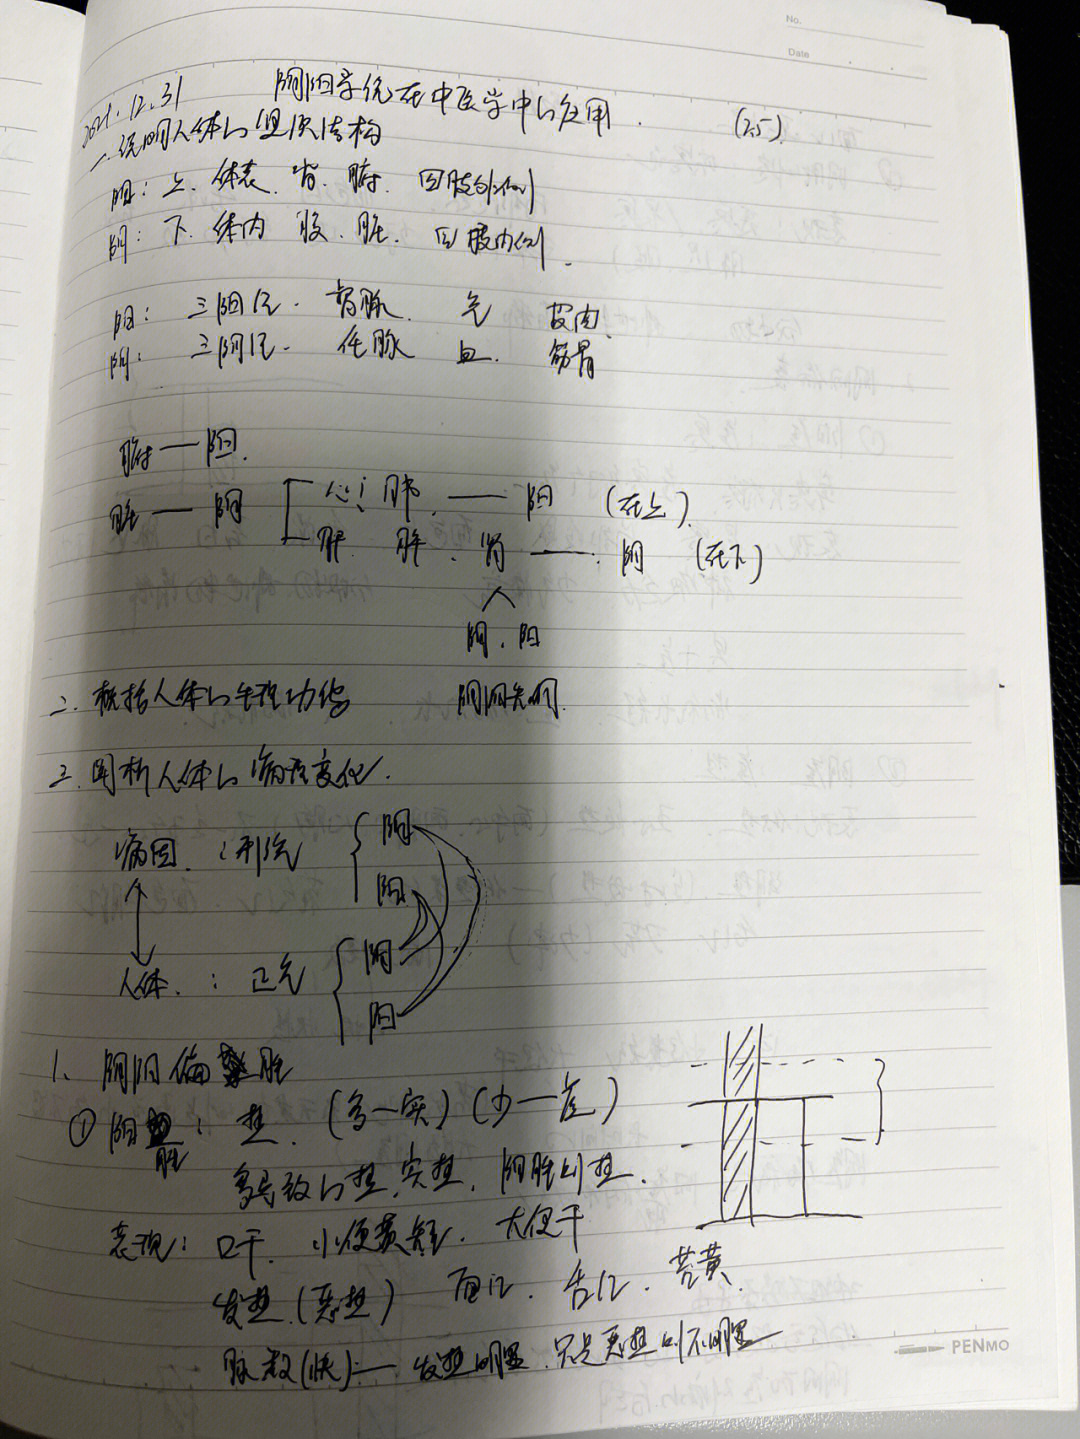 No.
Date
2021.12.31 阴阳学说在中医学中的应用. (25)
一.说明人体的组织结构
阳: 上. 体表. 背. 腑. 四肢外侧
阴: 下. 体内 腹. 脏. 四肢内侧.
阳: 三阳经. 督脉. 气 皮肉.
阴: 三阴经. 任脉 血. 筋骨
腑 — 阳.
脏 — 阴 心. 肺. — 阳 (在上).
肝. 脾. 肾 — 阴 (在下)
阴. 阳
二. 概括人体的生理功能 阴阳失调.
三. 阐析人体的病理变化.
病因. : 邪气 阴
阳
人体. : 正气 阴
阳
1. 阴阳偏胜
① 阳胜: 热. (多—实) (少—虚)
多导致的热. 实热. 阳胜则热.
表现: 口干. 小便黄短. 大便干
发热. (恶热) 面红. 舌红. 苔黄.
脉数(快) — 发热明显. 只是恶热则不明显
PENMO